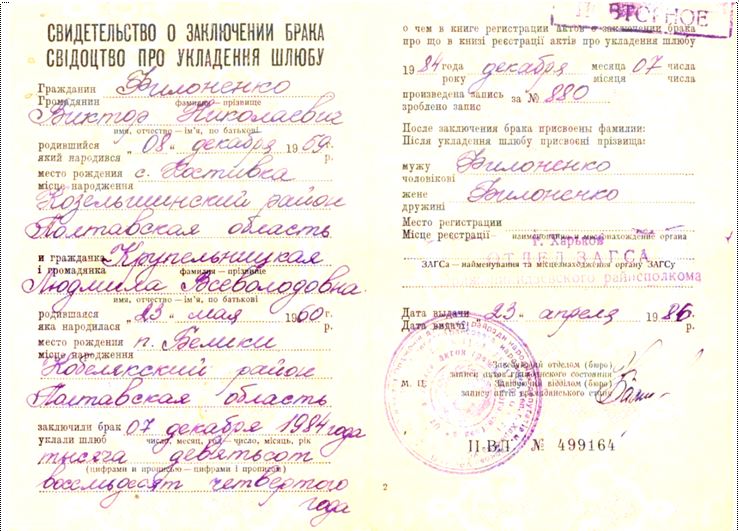 СВИДЕТЕЛЬСТВО О ЗАКЛЮЧЕНИИ БРАКА
СВІДОЦТВО ПРО УКЛАДЕННЯ ШЛЮБУ
Гражданин Билоненко
Громадянин фамилия — прізвище
Виктор Николаевна
имя, отчество — ім'я, по батькові
родившийся „08“ декабря 1959 г.
який народився р.
место рождения с. Костивка
місце народження
Козельщинский район
Полтавская область
и гражданка Крупельницкая
і громадянка фамилия — прізвище
Людмила Всеволодовна
имя, отчество — ім'я, по батькові
родившаяся „23“ мая 1960 г.
яка народилася р.
место рождения п. Белики
місце народження
Кобелякский район
Полтавская область
заключили брак 07 декабря 1984 года
уклали шлюб число, месяц, год — число, місяць, рік
тысяча девятьсот
(цифрами и прописью — цифрами і прописом)
восемьдесят четвертого
года
ВТОРНОЕ
о чем в книге регистрации актов о заключении брака
про що в книзі реєстрації актів про укладення шлюбу
1984 года декабря месяца 07 числа
року місяця числа
произведена запись за № 880
зроблено запис
После заключения брака присвоены фамилии:
Після укладення шлюбу присвоєні прізвища:
мужу Билоненко
чоловікові
жене Билоненко
дружині
Место регистрации
Місце реєстрації — наименование и местонахождение органа
г. Харьков
ОТДЕЛ ЗАГСА
ЗАГСа — найменування та місцезнаходження органу ЗАГСу
райисполкома
Дата выдачи „23“ апреля 1986 г.
Дата видачі р.
Заведующий отделом (бюро)
записи актов гражданского состояния
М. П. Завідуючий відділом (бюро)
запису актів громадянського стану
II-ВЛ № 499164
2